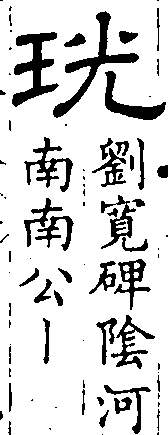 珖
劉寬碑陰河
南南公丨